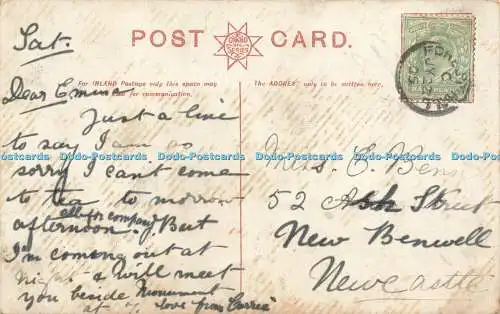 POST CARD.
GRAND
SERIES
For INLAND Postage only this space may
be used for communication.
The ADDRESS only to be written here.
Sat.
Dear Emma
Just a line
to say I am so
sorry I can't come
to tea to morrow
afternoon. But
I'm coming out at
night & will meet
you beside Monument
at
love from Carrie
Miss. E. Benn
52 Ash Street
New Benwell
Newcastle
Dodo-Postcards Dodo-Postcards Dodo-Postcards Dodo-Postcards Dodo-Postcards